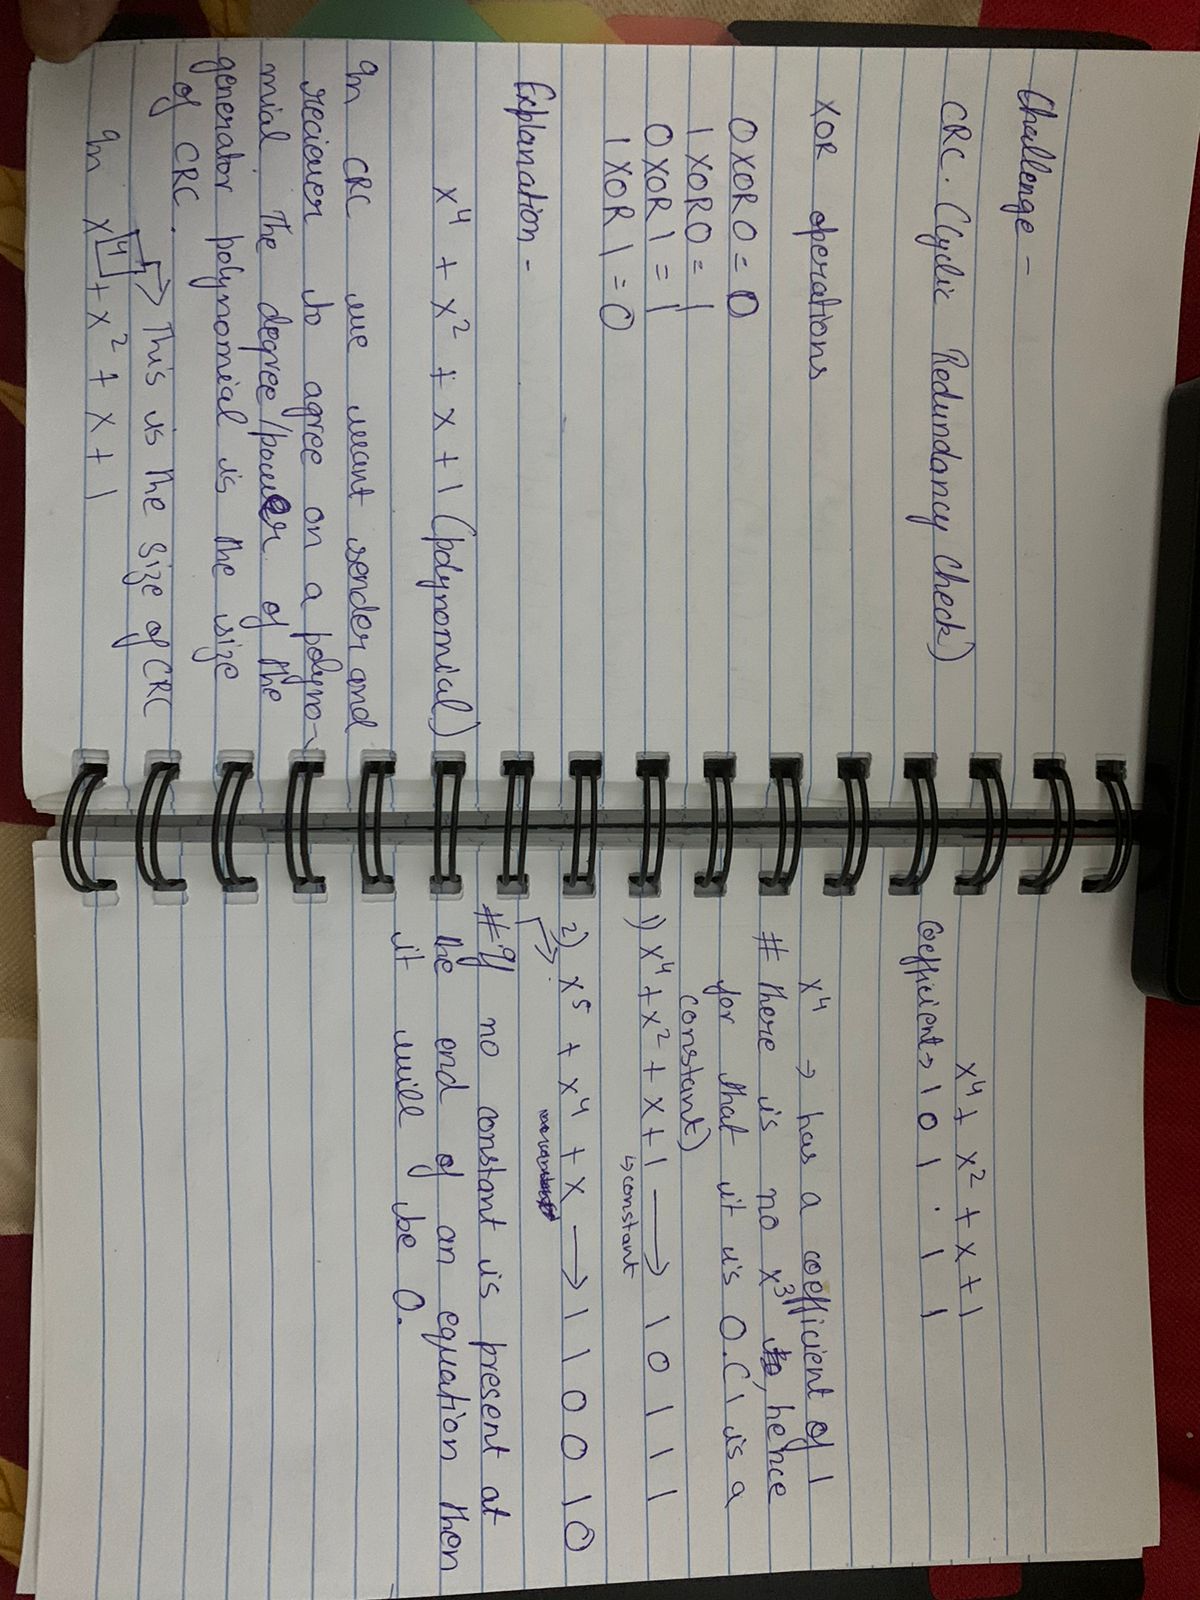 Challenge -
CRC. (Cyclic Redundancy Check)
XOR operations
0 XOR 0 = 0
1 XOR 0 = 1
0 XOR 1 = 1
1 XOR 1 = 0
Explanation -
x⁴ + x² + x + 1 (polynomial)
In CRC we want sender and
reciever to agree on a polyno-
mial. The degree/power of the
generator polynomial is the size
of CRC.
→ This is the size of CRC
In x⁴ + x² + x + 1
x⁴ + x² + x + 1
Coefficient → 1 0 1 · 1 1
x⁴ → has a coefficient of 1
# there is no x³, hence
for that it is 0. (1 is a
constant)
1) x⁴ + x² + x + 1 → 1 0 1 1 1
↳ constant
2) x⁵ + x⁴ + x → 1 1 0 0 1 0
# If no constant is present at
the end of an equation then
it will be 0.